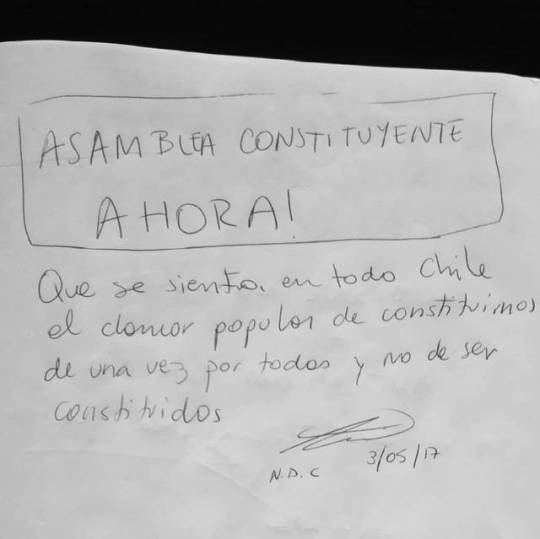 ASAMBLEA CONSTITUYENTE
AHORA!
Que se sienta en todo Chile
el clamor popular de constituirnos
de una vez por todas y no de ser
constituidos
N.D.C 3/05/17